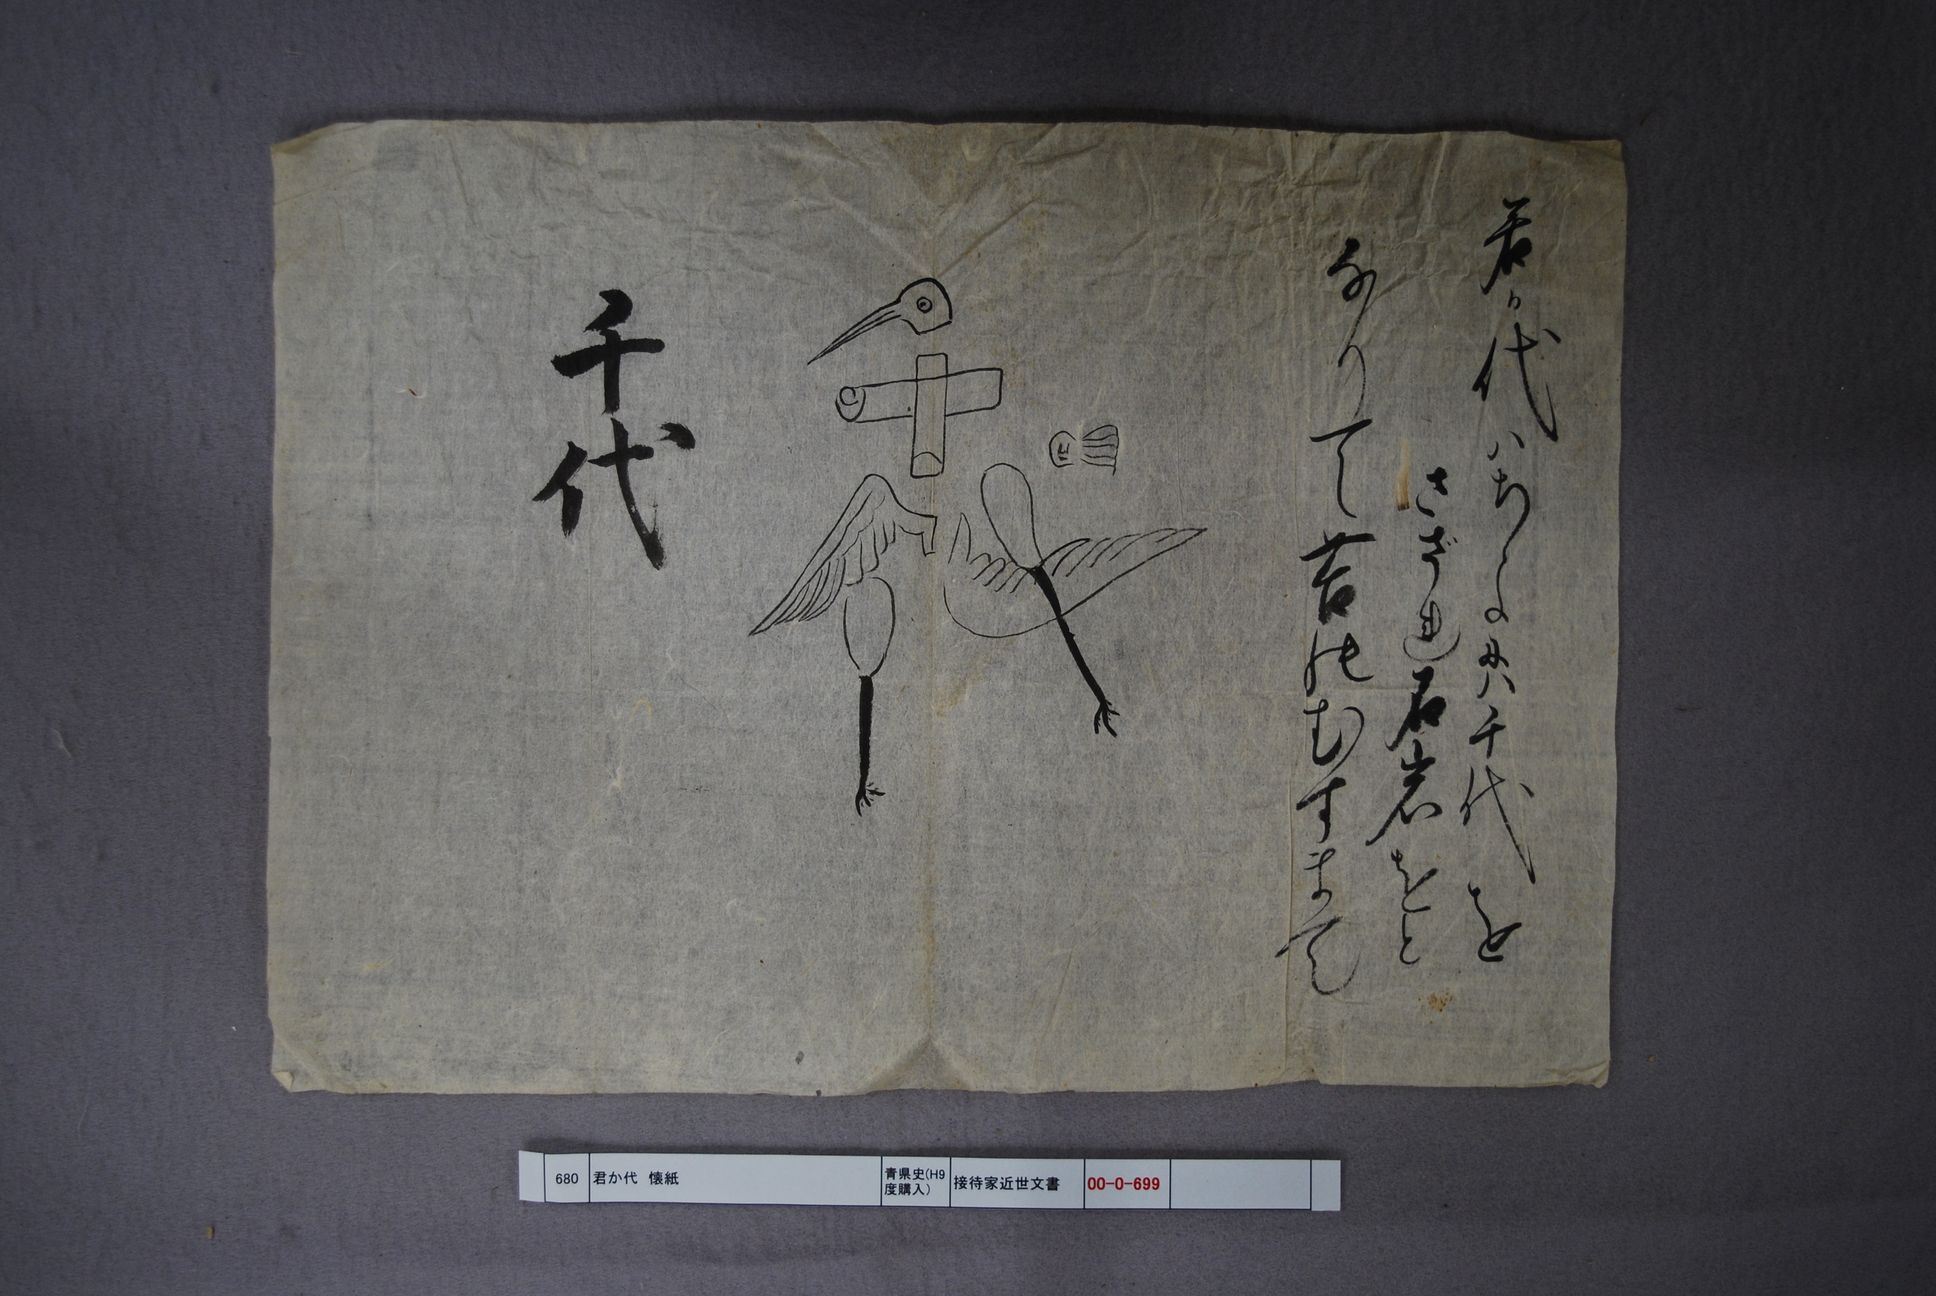 君か代ハちよに八千代を
さゞれ石岩をと
なりて苔のむすまて
千代
680 君か代 懐紙 青県史(H9度購入) 接待家近世文書 00-0-699